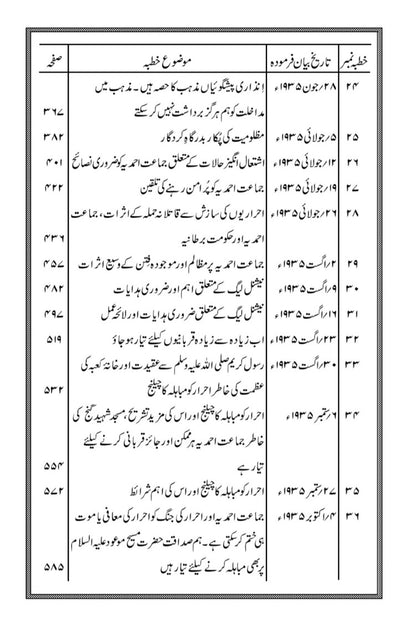 خطبہ نمبر تاریخ بیان فرمودہ موضوع خطبہ صفحہ
۲۴ ۲۸؍جون ۱۹۳۵ء اِنذاری پیشگوئیاں مذہب کا حصہ ہیں۔ مذہب میں
مداخلت کو ہم ہرگز برداشت نہیں کر سکتے ۳۶۷
۲۵ ۵؍جولائی ۱۹۳۵ء مظلومیت کی پُکار بدرگاہِ کردگار ۳۸۲
۲۶ ۱۲؍جولائی ۱۹۳۵ء اشتعال انگیز حالات کے متعلق جماعت احمدیہ کو ضروری نصائح ۴۰۱
۲۷ ۱۹؍جولائی ۱۹۳۵ء جماعت احمدیہ کو پُرامن رہنے کی تلقین ۴۲۲
۲۸ ۲۶؍جولائی ۱۹۳۵ء احراریوں کی سازش سے قاتلانہ حملہ کے اثرات، جماعت
احمدیہ اور حکومت برطانیہ ۴۳۶
۲۹ ۲؍اگست ۱۹۳۵ء جماعت احمدیہ پر مظالم اور موجودہ فتن کے وسیع اثرات ۴۵۷
۳۰ ۹؍اگست ۱۹۳۵ء نیشنل لیگ کے متعلق اہم اور ضروری ہدایات ۴۸۲
۳۱ ۱۶؍اگست ۱۹۳۵ء نیشنل لیگ کے متعلق ضروری ہدایات اور لائحہ عمل ۴۹۷
۳۲ ۲۳؍اگست ۱۹۳۵ء اب زیادہ سے زیادہ قربانیوں کیلئے تیار ہو جاؤ ۵۱۹
۳۳ ۳۰؍اگست ۱۹۳۵ء رسول کریم صلی اللہ علیہ وسلم سے عقیدت اور خانۂ کعبہ کی
عظمت کی خاطر احرار کو مباہلہ کا چیلنج ۵۳۲
۳۴ ۶؍ستمبر ۱۹۳۵ء احرار کو مباہلہ کا چیلنج اور اس کی مزید تشریح، مسجد شہید گنج کی
خاطر جماعت احمدیہ ہر ممکن اور جائز قربانی کرنے کیلئے
تیار ہے ۵۵۴
۳۵ ۲۷؍ستمبر ۱۹۳۵ء احرار کو مباہلہ کا چیلنج اور اس کی اہم شرائط ۵۷۲
۳۶ ۴؍اکتوبر ۱۹۳۵ء جماعت احمدیہ اور احرار کی جنگ کو احرار کی معافی یا موت
ہی ختم کر سکتی ہے۔ ہم صداقت حضرت مسیح موعود علیہ السلام
پر بھی مباہلہ کرنے کیلئے تیار ہیں ۵۸۵